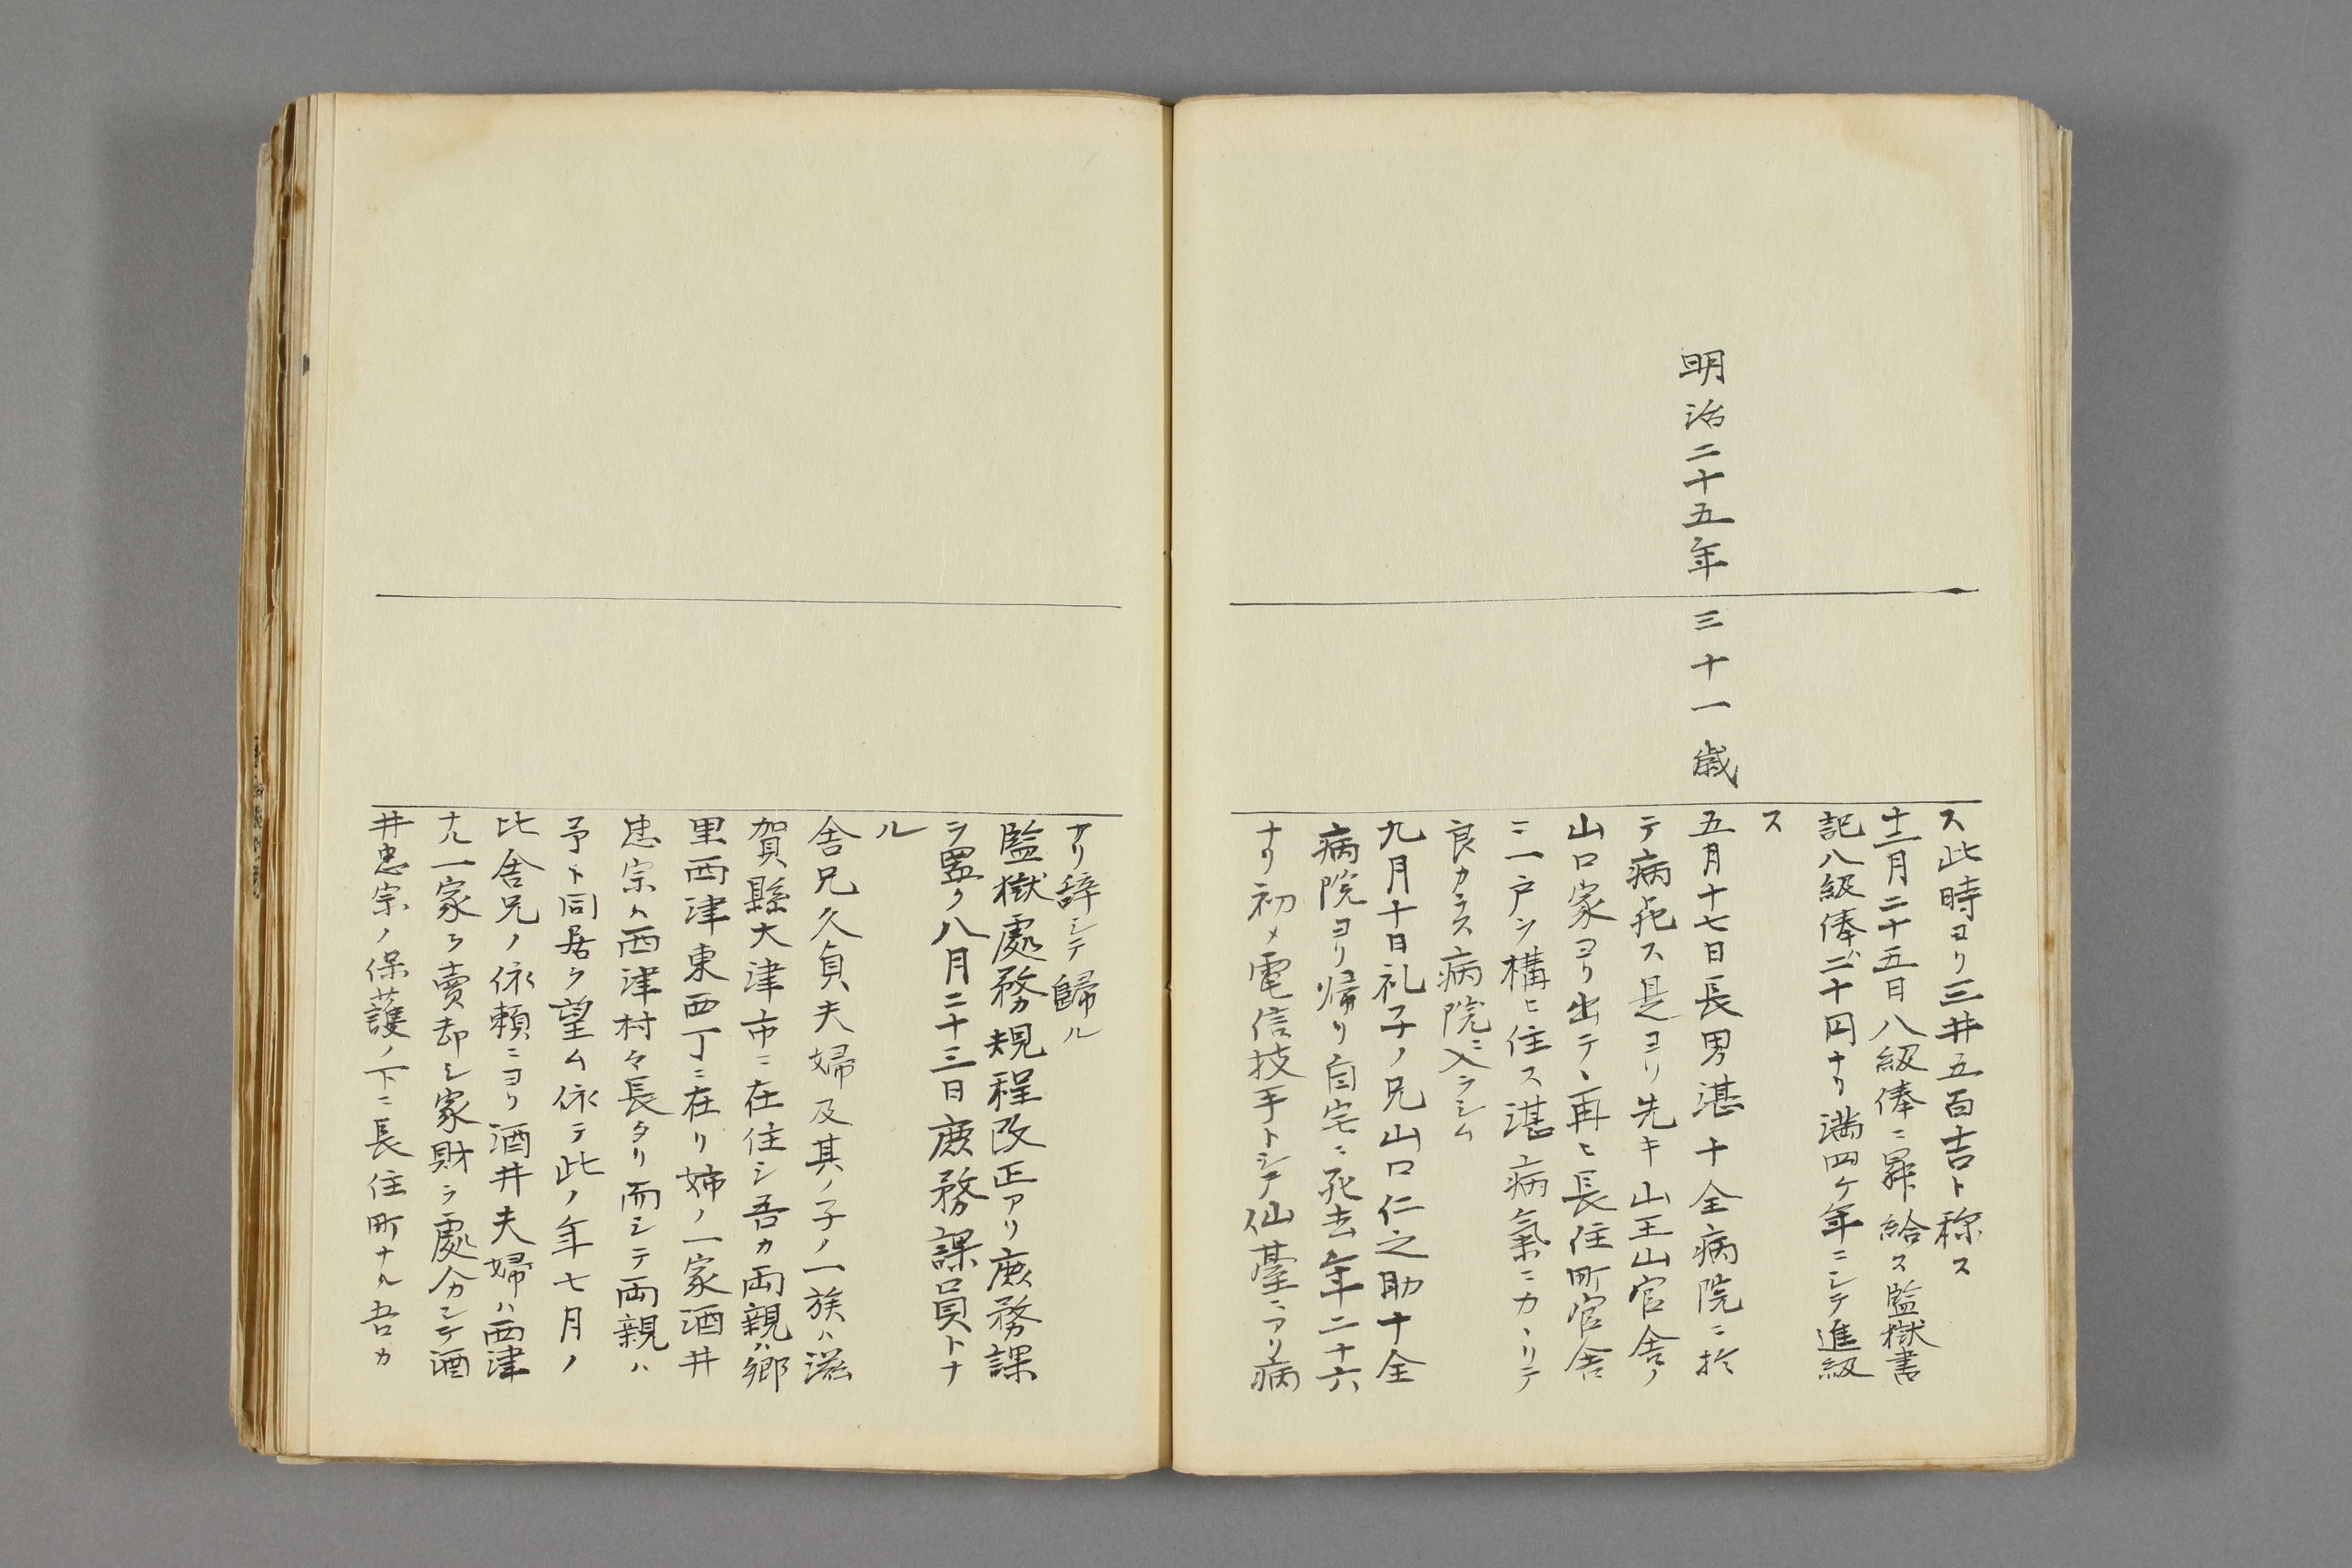 ス此時ヨリ三井五百吉ト称ス
十二月二十五日八級俸ニ昇給ス監獄書
記八級俸ハ二十円ナリ満四ケ年ニシテ進級
ス
明治二十五年 三十一歳
五月十七日長男湛十全病院ニ於
テ病死ス是ヨリ先キ山王山官舎ノ
山口家ヨリ出テヽ再ヒ長住町官舎
ニ一戸ヲ構ヒ住ス湛病氣ニカヽリテ
良カラス病院ニ入ラシム
九月十日礼子ノ兄山口仁之助十全
病院ヨリ帰リ自宅ニ死去年二十六
ナリ初メ電信技手トシテ仙臺ニアリ病
アリ辞シテ歸ル
監獄處務規程改正アリ庶務課
ヲ置ク八月二十三日庶務課員トナ
ル
舎兄久貞夫婦及其ノ子ノ一族ハ滋
賀縣大津市ニ在住シ吾カ両親ハ郷
里西津東西丁ニ在リ姉ノ一家酒井
忠宗ハ西津村々長タリ而シテ両親ハ
予ト同居ヲ望ム依テ此ノ年七月ノ
比舎兄ノ依頼ニヨリ酒井夫婦ハ西津
ナル一家ヲ賣却シ家財ヲ處分シテ酒
井忠宗ノ保護ノ下ニ長住町ナル吾カ